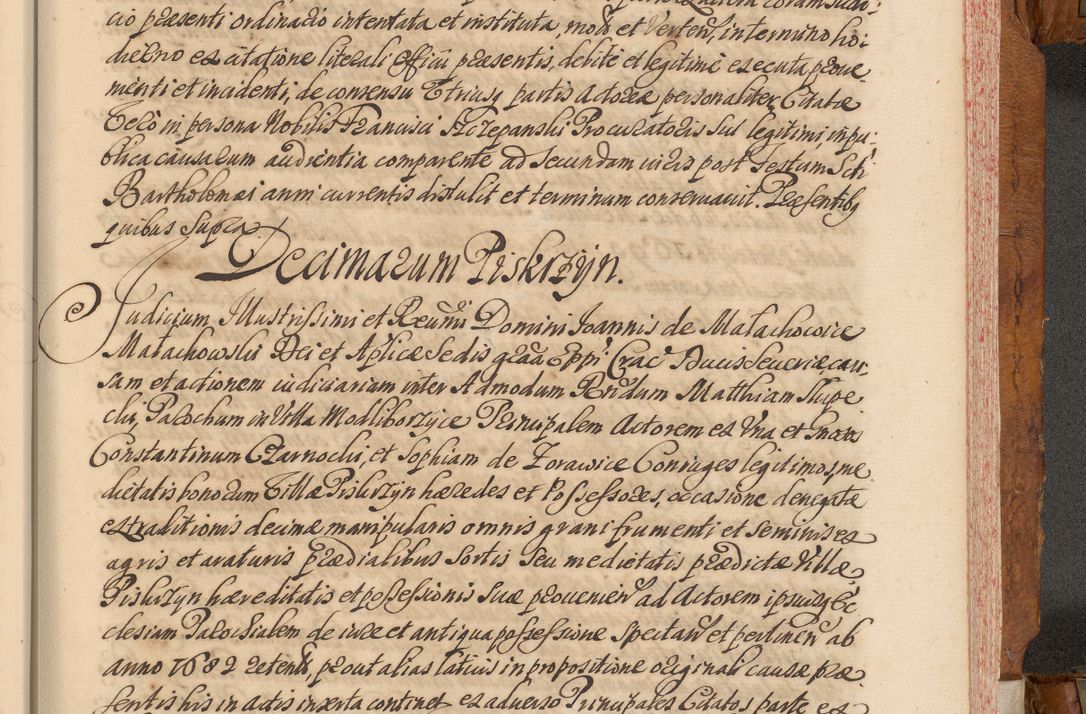 cio praesenti ordinario intentata et instituta, mod: et Verten, in termino ho:
dierno ex citatione literali Officii praesentis, debite et legitime executa, prove
nienti et incidenti, de consensu Utriusq partis Actorea personaliter, Citatae
Vero in persona Nobilis Francisci Szczepanski Procuratoris sui legitimi, in pu:
blica causarum audientia comparente ad secundam iuris post Festum Scti
Bartholomaei anni currentis distulit et terminum conservavit. Praesentibq
quibus supra.
Decimarum Piskrzyn.
Judicium Illustrissimi et Reumi Domini Joannis de Malachowice
Malachowski Dei et Aplicae Sedis graa Eppi Crac Ducis Severiae, cau,
sam et actionem iudiciariam inter Admodum Rndum Matthiam Slupe
cki, Parochum in Villa Modliborzyce Principalem Actorem ex Una et Gnosos
Constantinum Czarnocki, et Sophiam de Zorawice Coniuges legitimos, me
dietatis bonorum Villae Piskrzyn haeredes et Possessores, occasione denegatae
extraditionis decimae manipularis omnis grani frumenti et seminis ex
agris et araturis praedialibus sortis seu medietatis praedictae Villae
Piskrzyn haereditatis et possessionis suae provenien ad Actorem ipsiusq Ec
clesiam Parochialem de iure et antiqua possessione spectan et pertinen ab
anno 1682 retentae, prout alias latius in propositione originali causae prae
sentis his in actis inserta continet ex adverso Principales Citatos parte ex